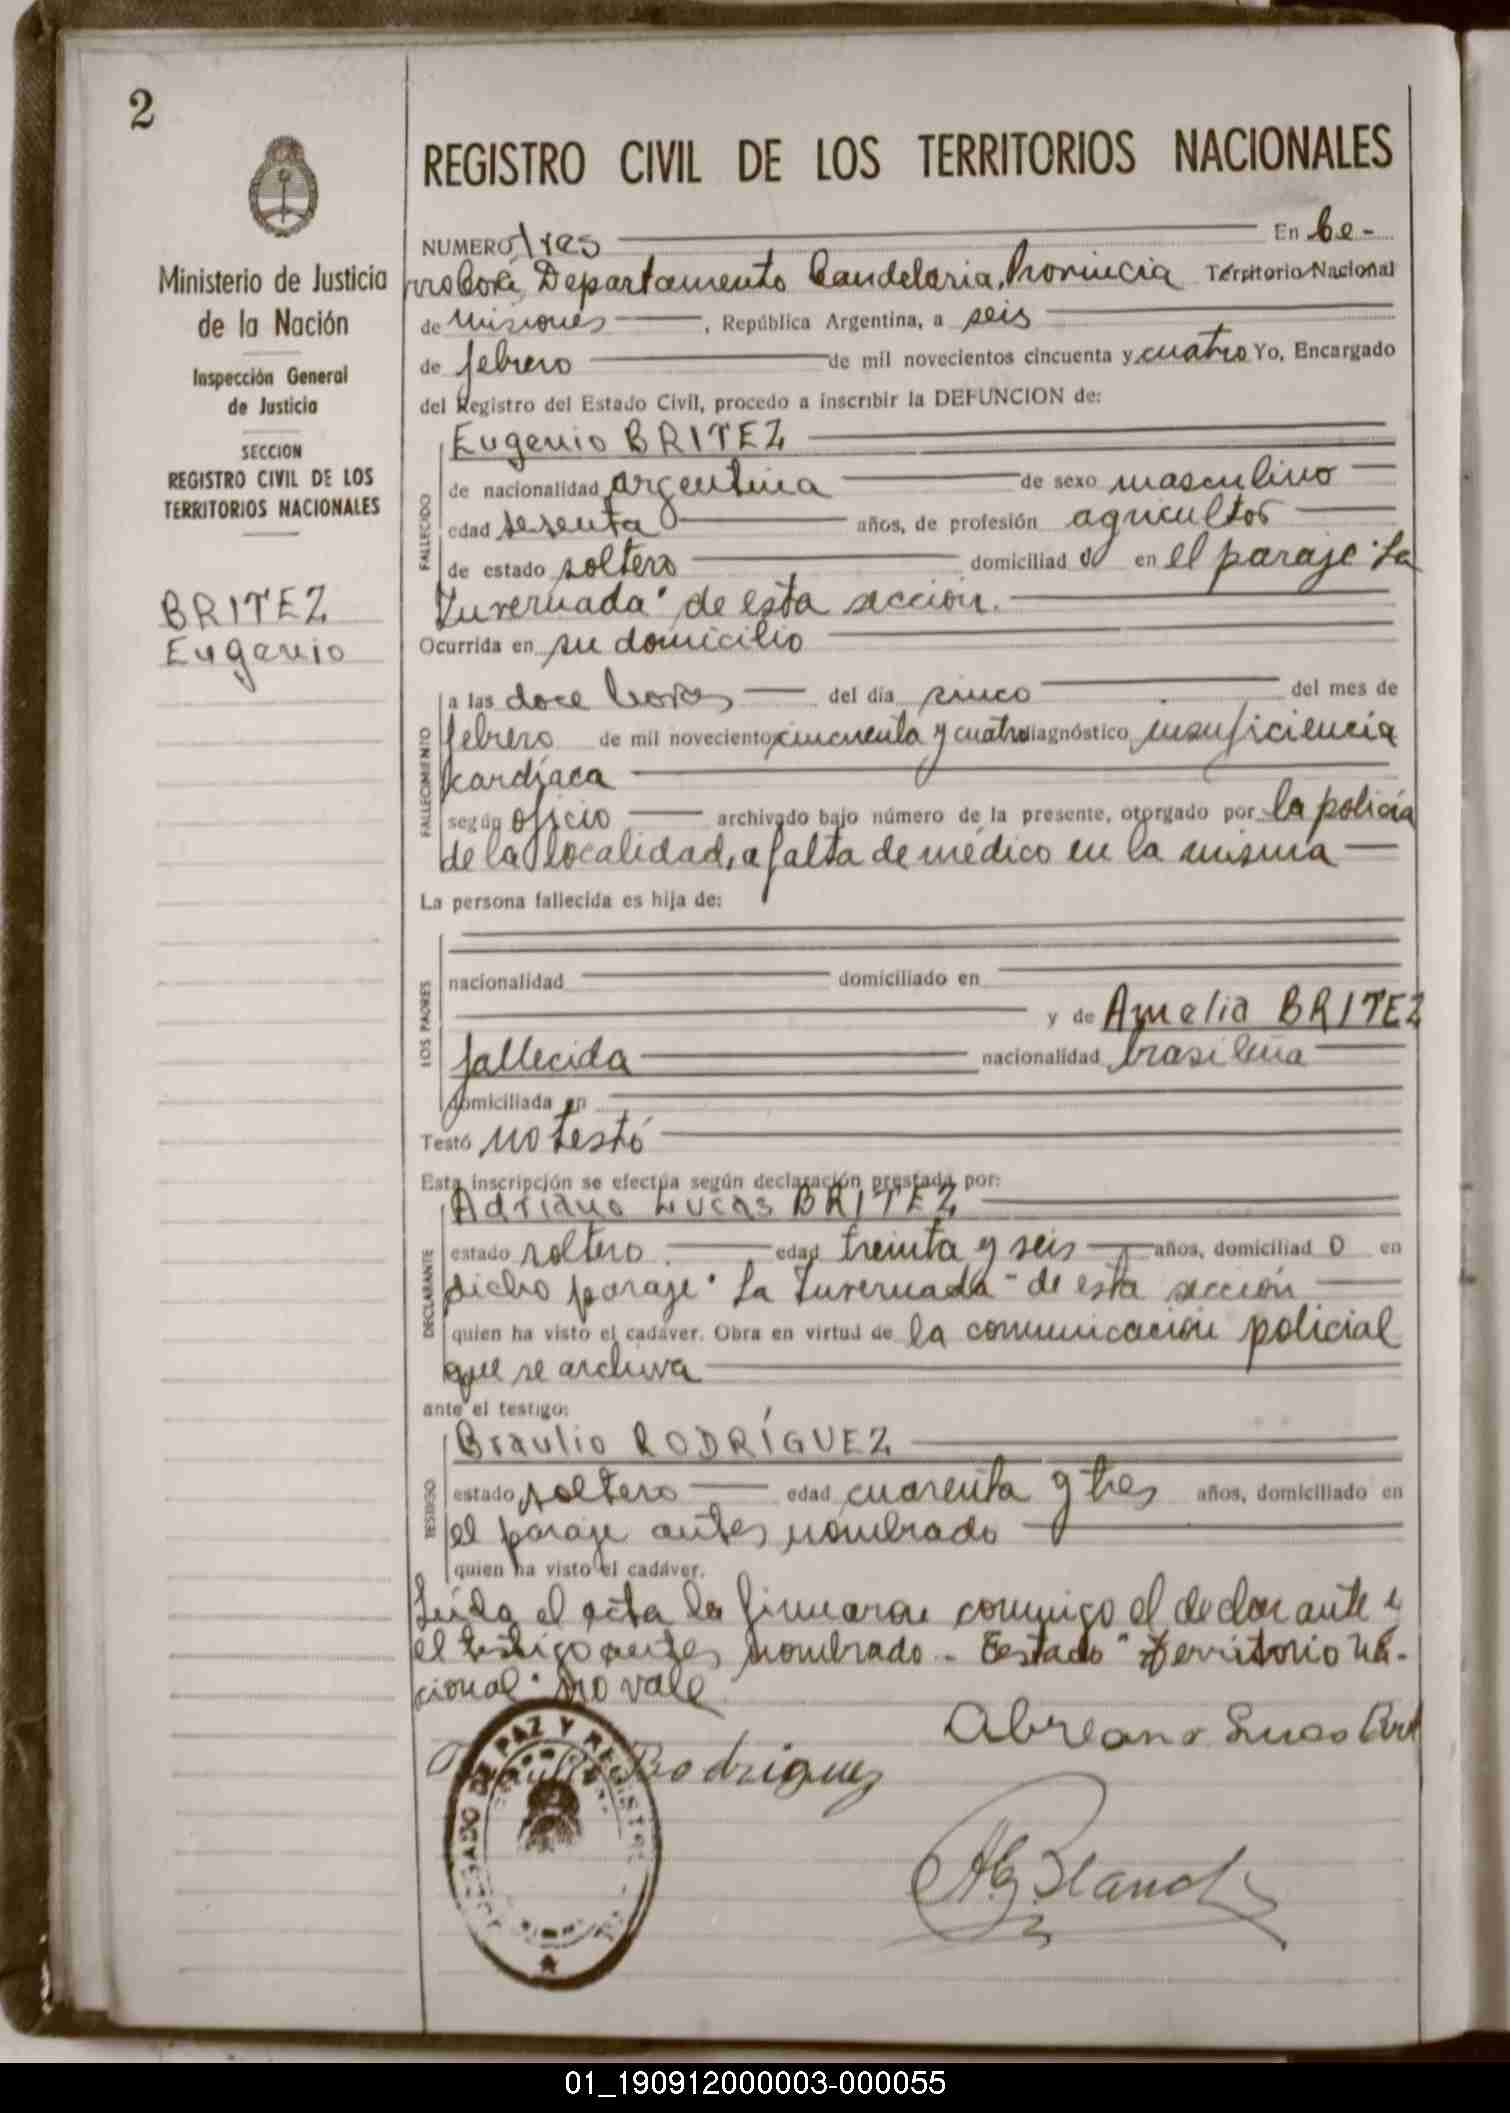 2
REGISTRO CIVIL DE LOS TERRITORIOS NACIONALES
Ministerio de Justicia
de la Nación
Inspección General
de Justicia
SECCION
REGISTRO CIVIL DE LOS
TERRITORIOS NACIONALES
BRITEZ
Eugenio
NUMERO tres En Ce-
rro Corá, Departamento Candelaria, Provincia Territorio Nacional
de Misiones, República Argentina, a seis
de febrero de mil novecientos cincuenta y cuatro Yo, Encargado
del Registro del Estado Civil, procedo a inscribir la DEFUNCION de:
FALLECIDO
Eugenio BRITEZ
de nacionalidad argentina de sexo masculino
edad sesenta años, de profesión agricultor
de estado soltero domiciliad o en el paraje "La
Invernada" de esta sección.
Ocurrida en su domicilio
FALLECIMIENTO
a las doce horas del día cinco del mes de
febrero de mil novecientos cincuenta y cuatro diagnóstico insuficiencia
cardíaca
según oficio archivado bajo número de la presente, otorgado por la policía
de la localidad, a falta de médico en la misma
La persona fallecida es hija de:
LOS PADRES
nacionalidad domiciliado en
y de Amelia BRITEZ
fallecida nacionalidad brasileña
domiciliada en
Testó no testó
Esta inscripción se efectúa según declaración prestada por:
DECLARANTE
Adriano Lucas BRITEZ
estado soltero. edad treinta y seis años, domiciliad o en
dicho paraje "La Invernada" de esta sección
quien ha visto el cadáver. Obra en virtud de la comunicación policial
que se archiva
ante el testigo:
TESTIGO
Braulio RODRÍGUEZ
estado soltero edad cuarenta y tres años, domiciliado en
el paraje antes nombrado
quien ha visto el cadáver.
Leída el acta la firmaron conmigo el declarante y
el testigo antes nombrado - Testado "Territorio Na-
cional" no vale
Rodriguez
JUZGADO DE PAZ Y REGISTRO
01_190912000003-000055